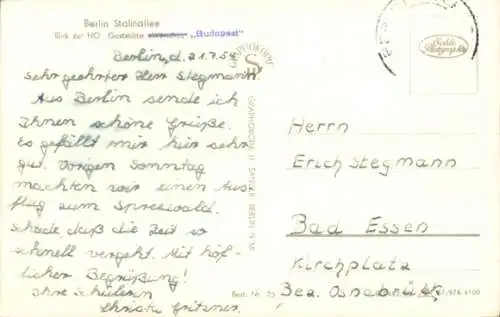 Berlin Stalinallee
Blick zur HO Gaststätte "Budapest"
Berlin, d. 21.7.54
Sehr geehrter Herr Stegmann.
Aus Berlin sende ich
Ihnen schöne Grüße.
Es gefällt mir hier sehr
gut. Vorigen Sonntag
machten wir einen Aus
flug zum Spreewald.
Schade, daß die Zeit so
schnell vergeht. Mit höf-
licher Begrüßung!
Ihre Schülerin
Christa
Herrn
Erich Stegmann
Bad Essen
Kirchplatz
Bez. Osnabrück
Best. Nr. 25